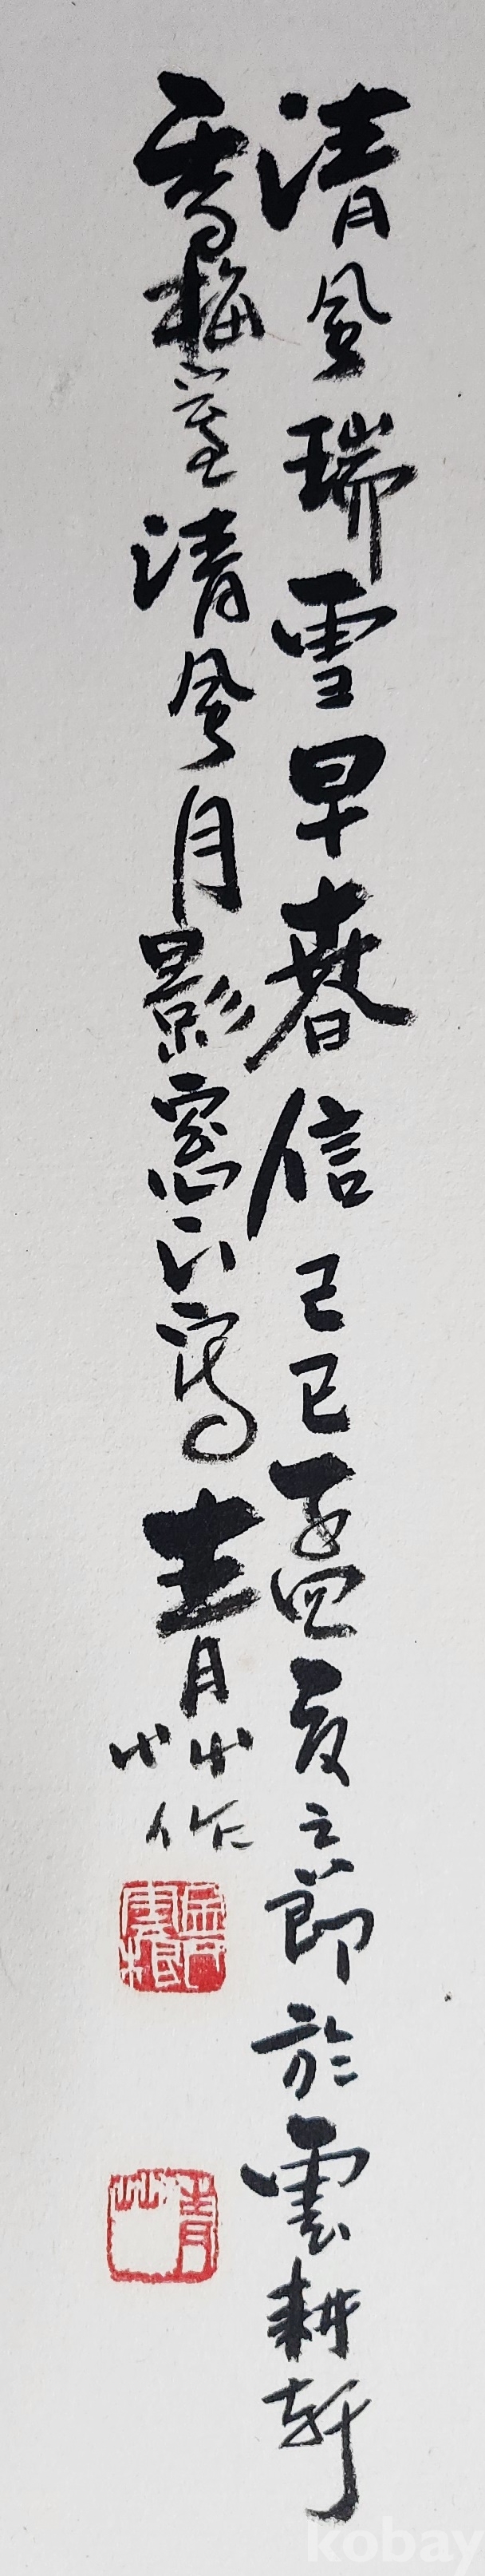 清風瑞雪早春信己巳孟夏之節於雲耕軒
雪梅
清風月影窓下寫 青艸作
青艸
kobay